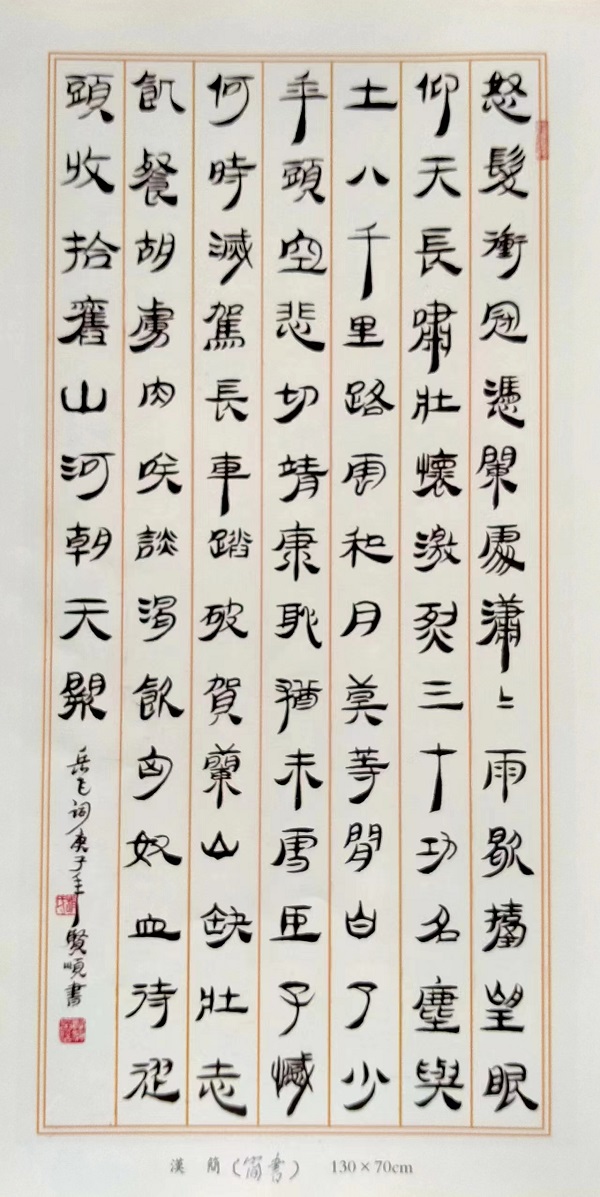 怒髮衝冠憑闌處瀟〻雨歇擡望眼
仰天長嘯壯懷激烈三十功名塵與
土八千里路雲和月莫等閒白了少
年頭空悲切靖康恥猶未雪臣子憾
何時滅駕長車踏破賀蘭山缺壯志
飢餐胡虜肉咲談渴飲匈奴血待從
頭收拾舊山河朝天闕
岳飞詞庚子年賢順書
漢 簡（簡書） 130×70cm